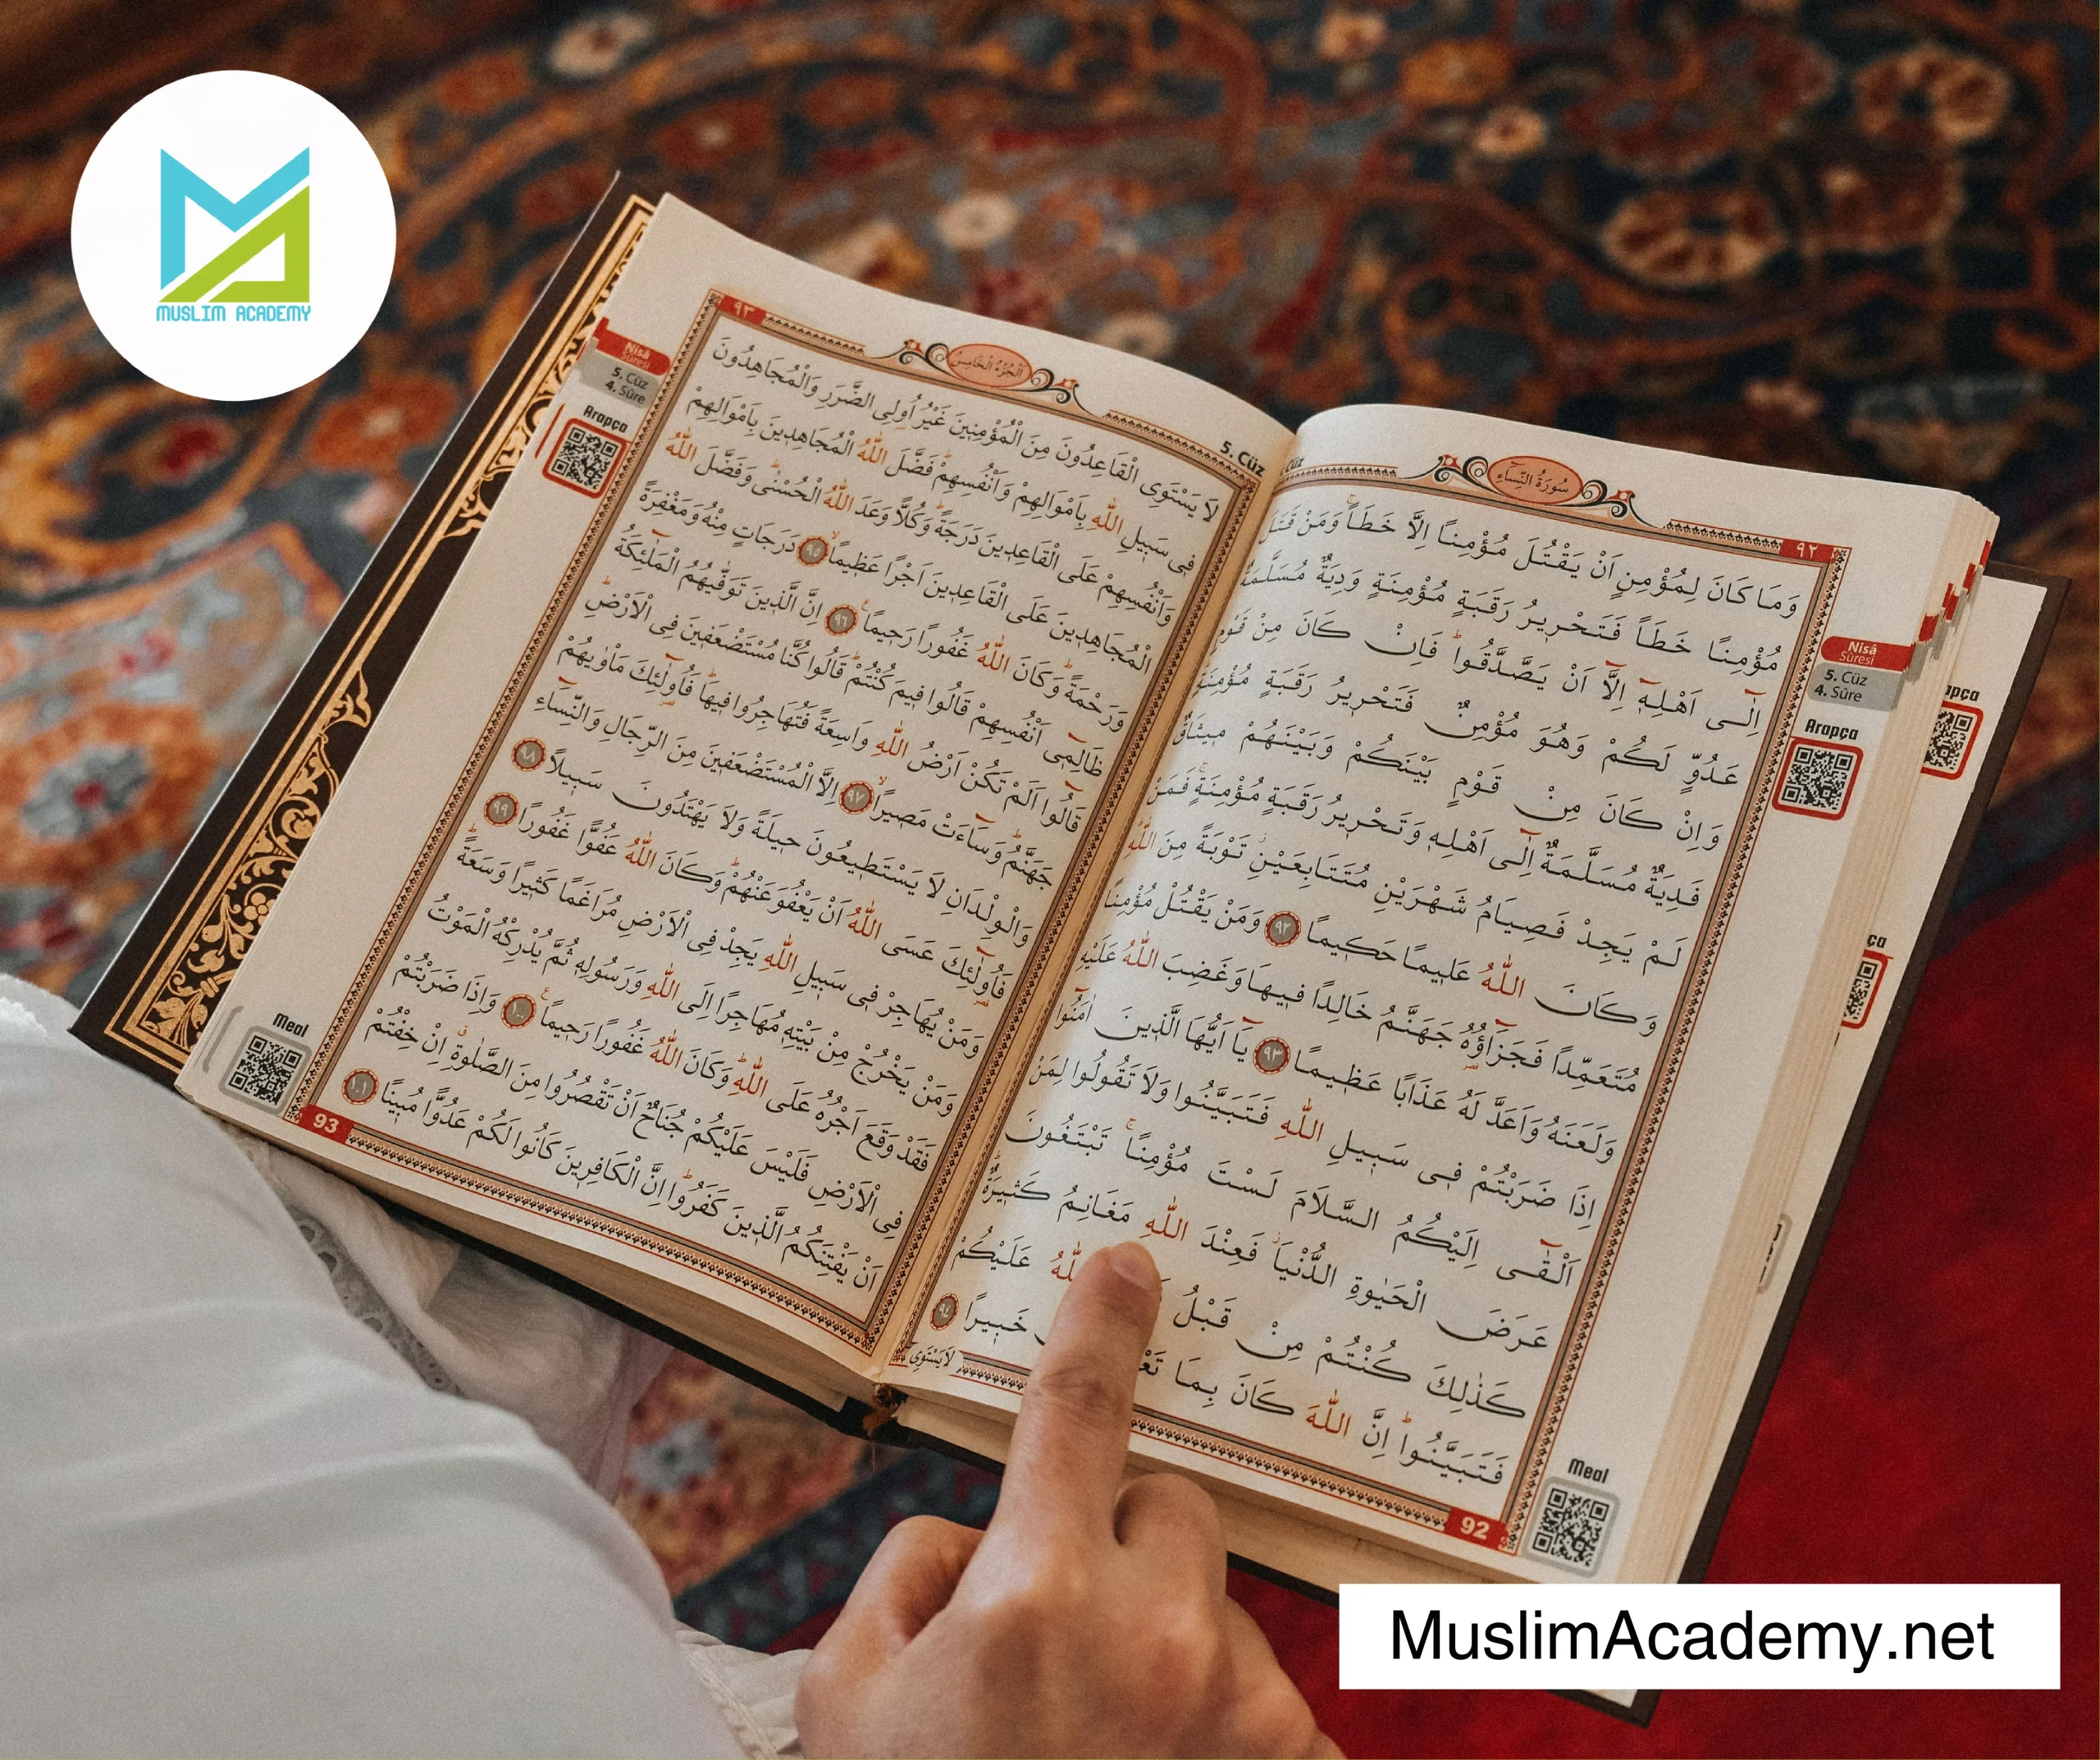 MUSLIM ACADEMY
سُورَةُ النِّسَاءِ
٩٢
وَمَا كَانَ لِمُؤْمِنٍ اَنْ يَقْتُلَ مُؤْمِنًا اِلَّا خَطَـًٔا وَمَنْ قَتَلَ
مُؤْمِنًا خَطَـًٔا فَتَحْرِيرُ رَقَبَةٍ مُؤْمِنَةٍ وَدِيَةٌ مُسَلَّمَةٌ
اِلٰٓى اَهْلِهٖٓ اِلَّٓا اَنْ يَصَّدَّقُوا فَاِنْ كَانَ مِنْ قَوْمٍ
عَدُوٍّ لَكُمْ وَهُوَ مُؤْمِنٌ فَتَحْرِيرُ رَقَبَةٍ مُؤْمِنَةٍ
وَاِنْ كَانَ مِنْ قَوْمٍ بَيْنَكُمْ وَبَيْنَهُمْ مِيثَاقٌ
فَدِيَةٌ مُسَلَّمَةٌ اِلٰٓى اَهْلِهٖ وَتَحْرِيرُ رَقَبَةٍ مُؤْمِنَةٍ فَمَنْ
لَمْ يَجِدْ فَصِيَامُ شَهْرَيْنِ مُتَتَابِعَيْنِ تَوْبَةً مِنَ اللّٰهِ
وَكَانَ اللّٰهُ عَلِيمًا حَكِيمًا ٩٢ وَمَنْ يَقْتُلْ مُؤْمِنًا
مُتَعَمِّدًا فَجَزَٓاؤُ۬هُ جَهَنَّمُ خَالِدًا فِيهَا وَغَضِبَ اللّٰهُ عَلَيْهِ
وَلَعَنَهُ وَاَعَدَّ لَهُ عَذَابًا عَظِيمًا ٩٣ يَٓا اَيُّهَا الَّذِينَ اٰمَنُٓوا
اِذَا ضَرَبْتُمْ فِى سَبِيلِ اللّٰهِ فَتَبَيَّنُوا وَلَا تَقُولُوا لِمَنْ
اَلْقٰٓى اِلَيْكُمُ السَّلَامَ لَسْتَ مُؤْمِنًا تَبْتَغُونَ
عَرَضَ الْحَيٰوةِ الدُّنْيَا فَعِنْدَ اللّٰهِ مَغَانِمُ كَثِيرَةٌ
كَذٰلِكَ كُنْتُمْ مِنْ قَبْلُ اللّٰهُ عَلَيْكُمْ
فَتَبَيَّنُوا اِنَّ اللّٰهَ كَانَ بِمَا خَبِيرًا ٩٤
لَا يَسْتَوِى
92
Nisâ
Sûresi
5. Cüz
4. Sûre
Arapça
Meal
٩٣
اَلْجُزْءُ الْخَامِسُ
5. Cüz
لَا يَسْتَوِى الْقَاعِدُونَ مِنَ الْمُؤْمِنِينَ غَيْرُ اُو۬لِى الضَّرَرِ وَالْمُجَاهِدُونَ
فِى سَبِيلِ اللّٰهِ بِاَمْوَالِهِمْ وَاَنْفُسِهِمْ فَضَّلَ اللّٰهُ الْمُجَاهِدِينَ بِاَمْوَالِهِمْ
وَاَنْفُسِهِمْ عَلَى الْقَاعِدِينَ دَرَجَةً وَكُلًّا وَعَدَ اللّٰهُ الْحُسْنٰى وَفَضَّلَ اللّٰهُ
الْمُجَاهِدِينَ عَلَى الْقَاعِدِينَ اَجْرًا عَظِيمًا ٩٥ دَرَجَاتٍ مِنْهُ وَمَغْفِرَةً
وَرَحْمَةً وَكَانَ اللّٰهُ غَفُورًا رَحِيمًا ٩٦ اِنَّ الَّذِينَ تَوَفّٰيهُمُ الْمَلٰٓئِكَةُ
ظَالِمِٓى اَنْفُسِهِمْ قَالُوا فِيمَ كُنْتُمْ قَالُوا كُنَّا مُسْتَضْعَفِينَ فِى الْاَرْضِ
قَالُٓوا اَلَمْ تَكُنْ اَرْضُ اللّٰهِ وَاسِعَةً فَتُهَاجِرُوا فِيهَا فَاُو۬لٰٓئِكَ مَاْوٰيهُمْ
جَهَنَّمُ وَسَٓاءَتْ مَصِيرًا ٩٧ اِلَّا الْمُسْتَضْعَفِينَ مِنَ الرِّجَالِ وَالنِّسَٓاءِ
وَالْوِلْدَانِ لَا يَسْتَطِيعُونَ حِيلَةً وَلَا يَهْتَدُونَ سَبِيلًا ٩٨
فَاُو۬لٰٓئِكَ عَسَى اللّٰهُ اَنْ يَعْفُوَ عَنْهُمْ وَكَانَ اللّٰهُ عَفُوًّا غَفُورًا ٩٩
وَمَنْ يُهَاجِرْ فِى سَبِيلِ اللّٰهِ يَجِدْ فِى الْاَرْضِ مُرَاغَمًا كَثِيرًا وَسَعَةً
وَمَنْ يَخْرُجْ مِنْ بَيْتِهٖ مُهَاجِرًا اِلَى اللّٰهِ وَرَسُولِهٖ ثُمَّ يُدْرِكْهُ الْمَوْتُ
فَقَدْ وَقَعَ اَجْرُهُ عَلَى اللّٰهِ وَكَانَ اللّٰهُ غَفُورًا رَحِيمًا ١٠٠ وَاِذَا ضَرَبْتُمْ
فِى الْاَرْضِ فَلَيْسَ عَلَيْكُمْ جُنَاحٌ اَنْ تَقْصُرُوا مِنَ الصَّلٰوةِ اِنْ خِفْتُمْ
اَنْ يَفْتِنَكُمُ الَّذِينَ كَفَرُوا اِنَّ الْكَافِرِينَ كَانُوا لَكُمْ عَدُوًّا مُبِينًا ١٠١
93
Nisâ
Sûresi
5. Cüz
4. Sûre
Arapça
Meal
MuslimAcademy.net